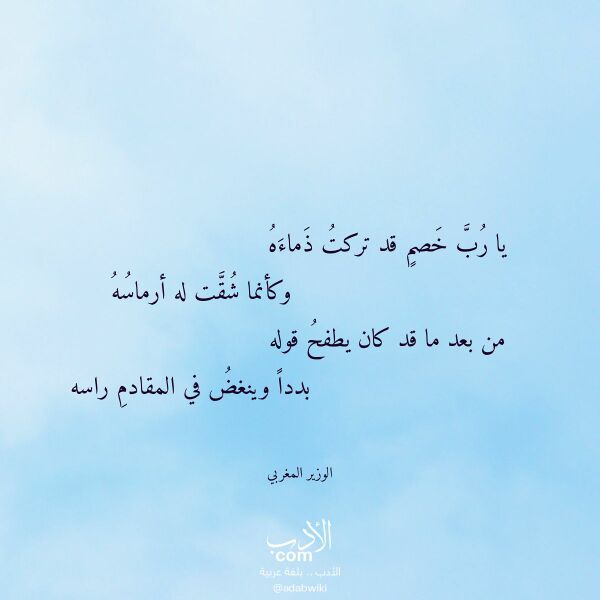 يا رُبَّ خَصمٍ قد تركتُ ذَماءَهُ
وكأنما شُقَّت له أرماسُهُ
من بعد ما قد كان يطفحُ قوله
بدداً وينغضُ في المقادمِ راسه
الوزير المغربي
الأدب
com
الأدب .. بلغة عربية
@adabwiki